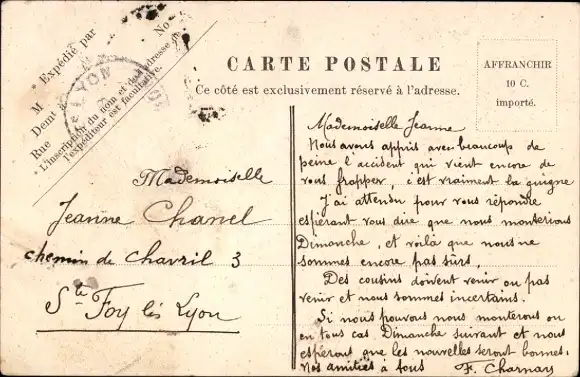 M Expédié par
No
Demt à
Rue
* L'inscription du nom et de l'adresse de
l'expéditeur est facultative. *
LYON
CARTE POSTALE
Ce côté est exclusivement réservé à l'adresse.
AFFRANCHIR
10 C.
importé.
Mademoiselle
Jeanne Chanel
chemin de Chavril 3
Ste Foy lès Lyon
Mademoiselle Jeanne
Nous avons appris avec beaucoup de
peine l'accident qui vient encore de
vous frapper, c'est vraiment la guigne
J'ai attendu pour vous répondre
espérant vous dire que nous monterions
Dimanche, et voilà que nous ne
sommes encore pas sûrs,
Des cousins doivent venir ou pas
venir et nous sommes incertains.
Si nous pouvons nous monterons ou
en tous cas Dimanche suivant et nous
espérons que les nouvelles seront bonnes.
Nos amitiés à tous F. Charnay